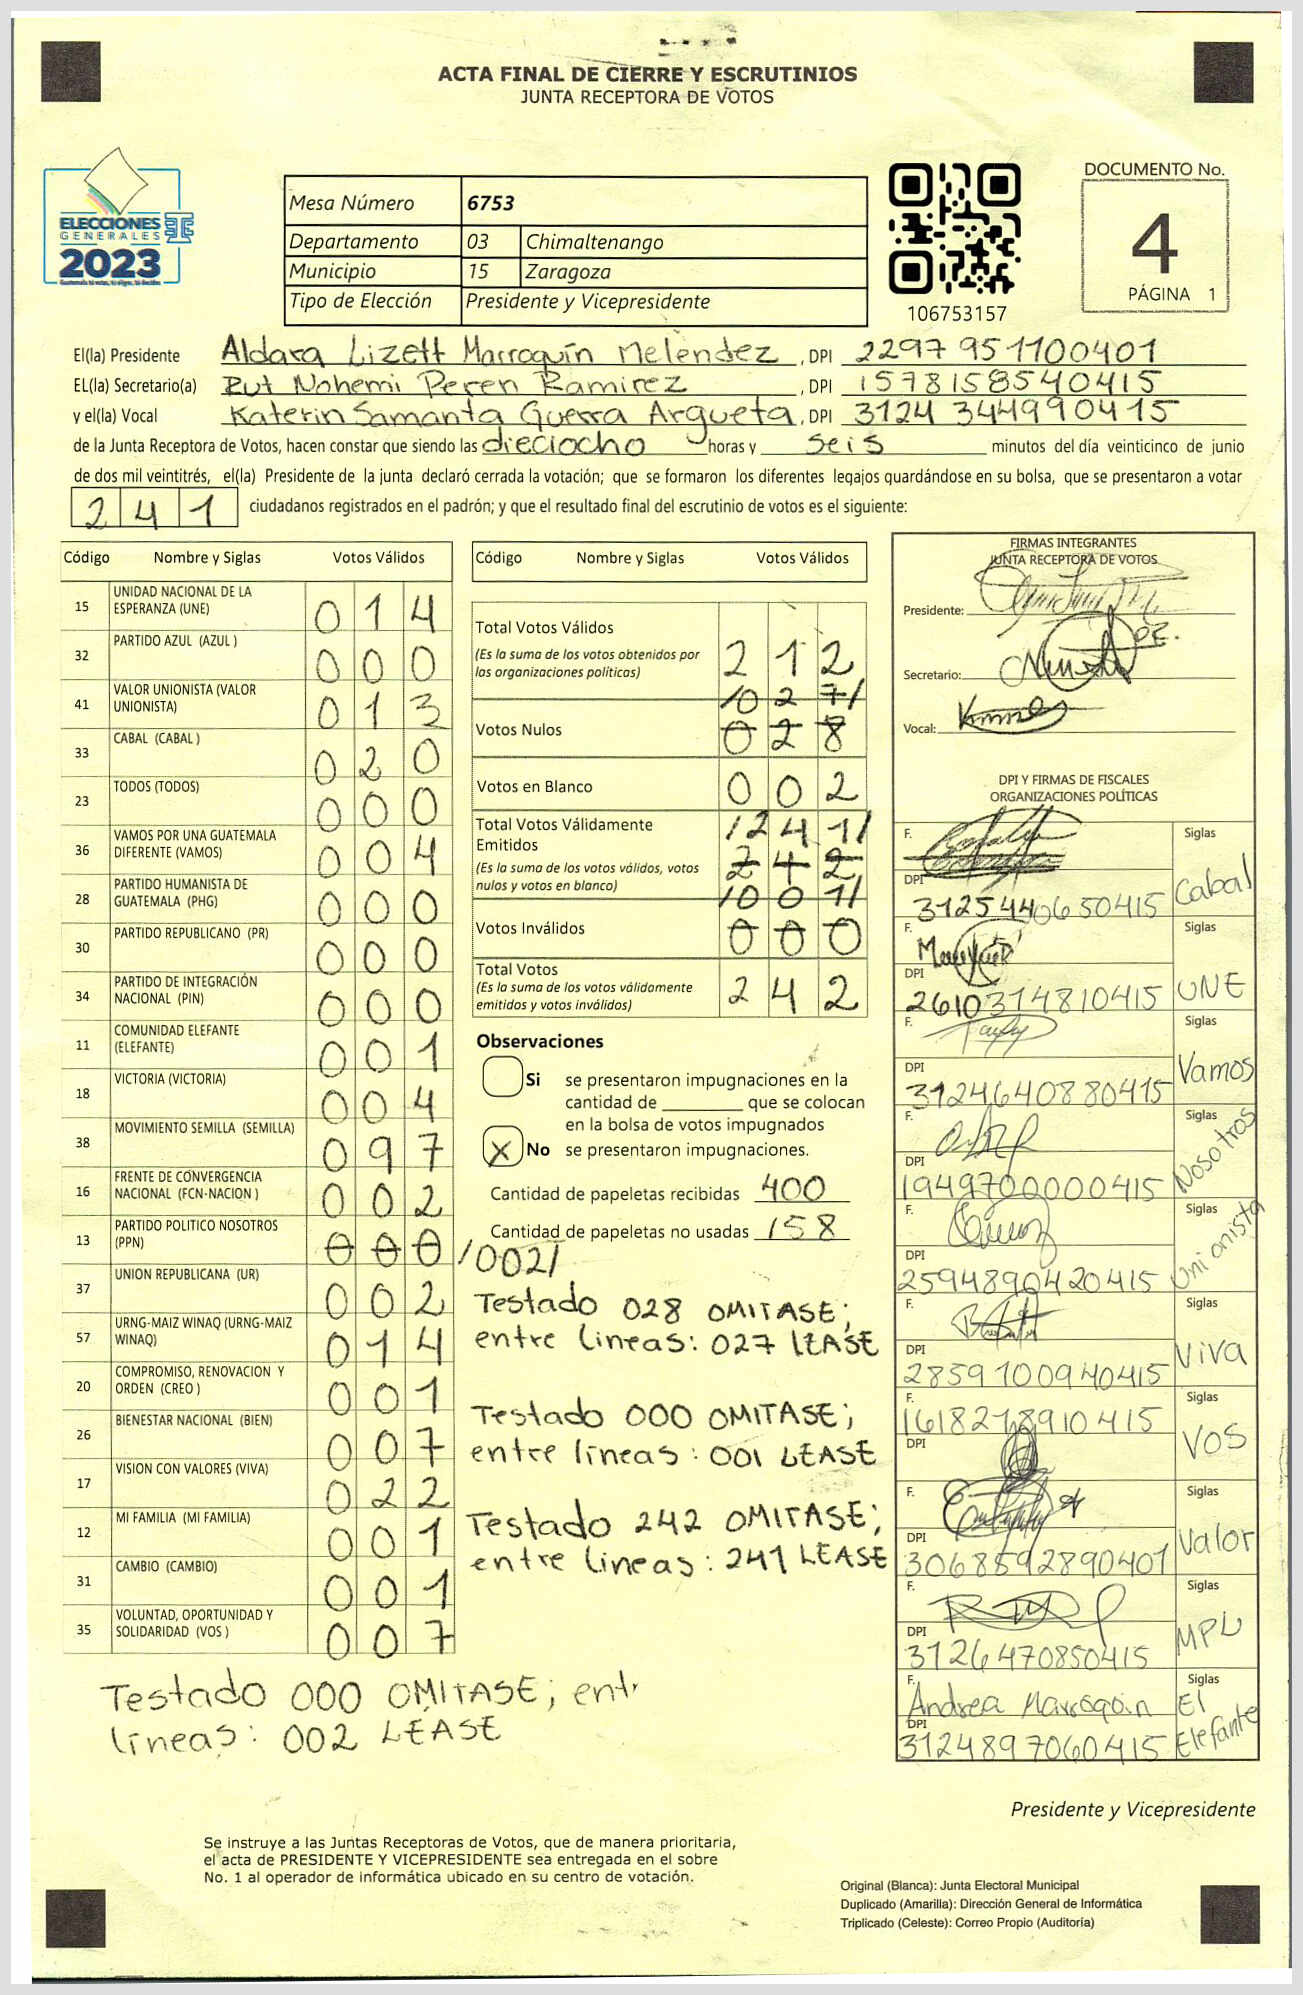 ACTA FINAL DE CIERRE Y ESCRUTINIOS
JUNTA RECEPTORA DE VOTOS
ELECCIONES
GENERALES
2023
Mesa Número 6753
Departamento 03 Chimaltenango
Municipio 15 Zaragoza
Tipo de Elección Presidente y Vicepresidente
106753157
DOCUMENTO No.
4
PÁGINA 1
El(la) Presidente Aldara Lizett Marroquín Melendez, DPI 2297 951100401
EL(la) Secretario(a) Rut Nohemi Peren Ramirez, DPI 1578158540415
y el(la) Vocal Katerin Samanta Guerra Argueta, DPI 3124 344990415
de la Junta Receptora de Votos, hacen constar que siendo las dieciocho horas y seis minutos del día veinticinco de junio
de dos mil veintitrés, el(la) Presidente de la junta declaró cerrada la votación; que se formaron los diferentes legajos guardándose en su bolsa, que se presentaron a votar
241 ciudadanos registrados en el padrón; y que el resultado final del escrutinio de votos es el siguiente:
Código Nombre y Siglas Votos Válidos
15 UNIDAD NACIONAL DE LA ESPERANZA (UNE) 014
32 PARTIDO AZUL (AZUL ) 000
41 VALOR UNIONISTA (VALOR UNIONISTA) 013
33 CABAL (CABAL ) 020
23 TODOS (TODOS) 000
36 VAMOS POR UNA GUATEMALA DIFERENTE (VAMOS) 004
28 PARTIDO HUMANISTA DE GUATEMALA (PHG) 000
30 PARTIDO REPUBLICANO (PR) 000
34 PARTIDO DE INTEGRACIÓN NACIONAL (PIN) 000
11 COMUNIDAD ELEFANTE (ELEFANTE) 001
18 VICTORIA (VICTORIA) 004
38 MOVIMIENTO SEMILLA (SEMILLA) 097
16 FRENTE DE CONVERGENCIA NACIONAL (FCN-NACION ) 002
13 PARTIDO POLITICO NOSOTROS (PPN) 000 /002/
37 UNION REPUBLICANA (UR) 002
57 URNG-MAIZ WINAQ (URNG-MAIZ WINAQ) 014
20 COMPROMISO, RENOVACION Y ORDEN (CREO ) 001
26 BIENESTAR NACIONAL (BIEN) 007
17 VISION CON VALORES (VIVA) 022
12 MI FAMILIA (MI FAMILIA) 001
31 CAMBIO (CAMBIO) 001
35 VOLUNTAD, OPORTUNIDAD Y SOLIDARIDAD (VOS ) 007
Testado 000 OMITASE; entr
líneas: 002 LEASE
Código Nombre y Siglas Votos Válidos
Total Votos Válidos 212
(Es la suma de los votos obtenidos por
las organizaciones políticas)
/027/
Votos Nulos 028
Votos en Blanco 002
Total Votos Válidamente /241/
Emitidos 242
(Es la suma de los votos válidos, votos
nulos y votos en blanco)
/001/
Votos Inválidos 000
Total Votos 242
(Es la suma de los votos válidamente
emitidos y votos inválidos)
Observaciones
Si se presentaron impugnaciones en la
cantidad de ________ que se colocan
en la bolsa de votos impugnados
X No se presentaron impugnaciones.
Cantidad de papeletas recibidas 400
Cantidad de papeletas no usadas 158
Testado 028 OMITASE;
entre lineas: 027 LEASE
Testado 000 OMITASE;
entre líneas: 001 LEASE
Testado 242 OMITASE;
entre lineas: 241 LEASE
FIRMAS INTEGRANTES
JUNTA RECEPTORA DE VOTOS
Presidente:
Secretario:
Vocal:
DPI Y FIRMAS DE FISCALES
ORGANIZACIONES POLÍTICAS
F. Siglas
DPI 3125440650415 Cabal
F. Siglas
DPI 2610314810415 UNE
F. Siglas
DPI 3124640880415 Vamos
F. Siglas
DPI 1949700000415 Nosotros
F. Siglas
DPI 2594890420415 Unionista
F. Siglas
DPI 2859100940415 VIVA
F. Siglas
1618278910415
DPI VOS
F. Siglas
DPI 3068592890401 Valor
F. Siglas
DPI 3126470850415 MPL
F. Siglas
Andrea Marroquin El
DPI 3124897060415 Elefante
Presidente y Vicepresidente
Se instruye a las Juntas Receptoras de Votos, que de manera prioritaria,
el acta de PRESIDENTE Y VICEPRESIDENTE sea entregada en el sobre
No. 1 al operador de informática ubicado en su centro de votación.
Original (Blanca): Junta Electoral Municipal
Duplicado (Amarilla): Dirección General de Informática
Triplicado (Celeste): Correo Propio (Auditoría)